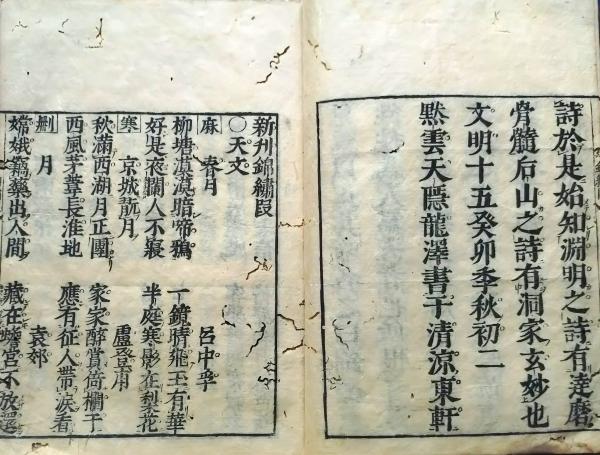 詩於是始知淵明之詩有達磨
骨髓后山之詩有洞家玄妙也
文明十五癸卯季秋初二
默雲天隱龍澤書于清涼東軒
新刊錦繡段
○天文
麻 春月 呂中孚
柳塘漠漠暗啼鴉 一鏡晴飛玉有華
好是夜闌人不寢 半庭寒影在梨花
寒 京城翫月 盧登甫
秋滿西湖月正團 家家醉賞倚欄干
西風茅葦長淮地 應有征人帶淚看
刪 月 袁郊
嫦娥竊藥出人間 藏在蟾宮不放還